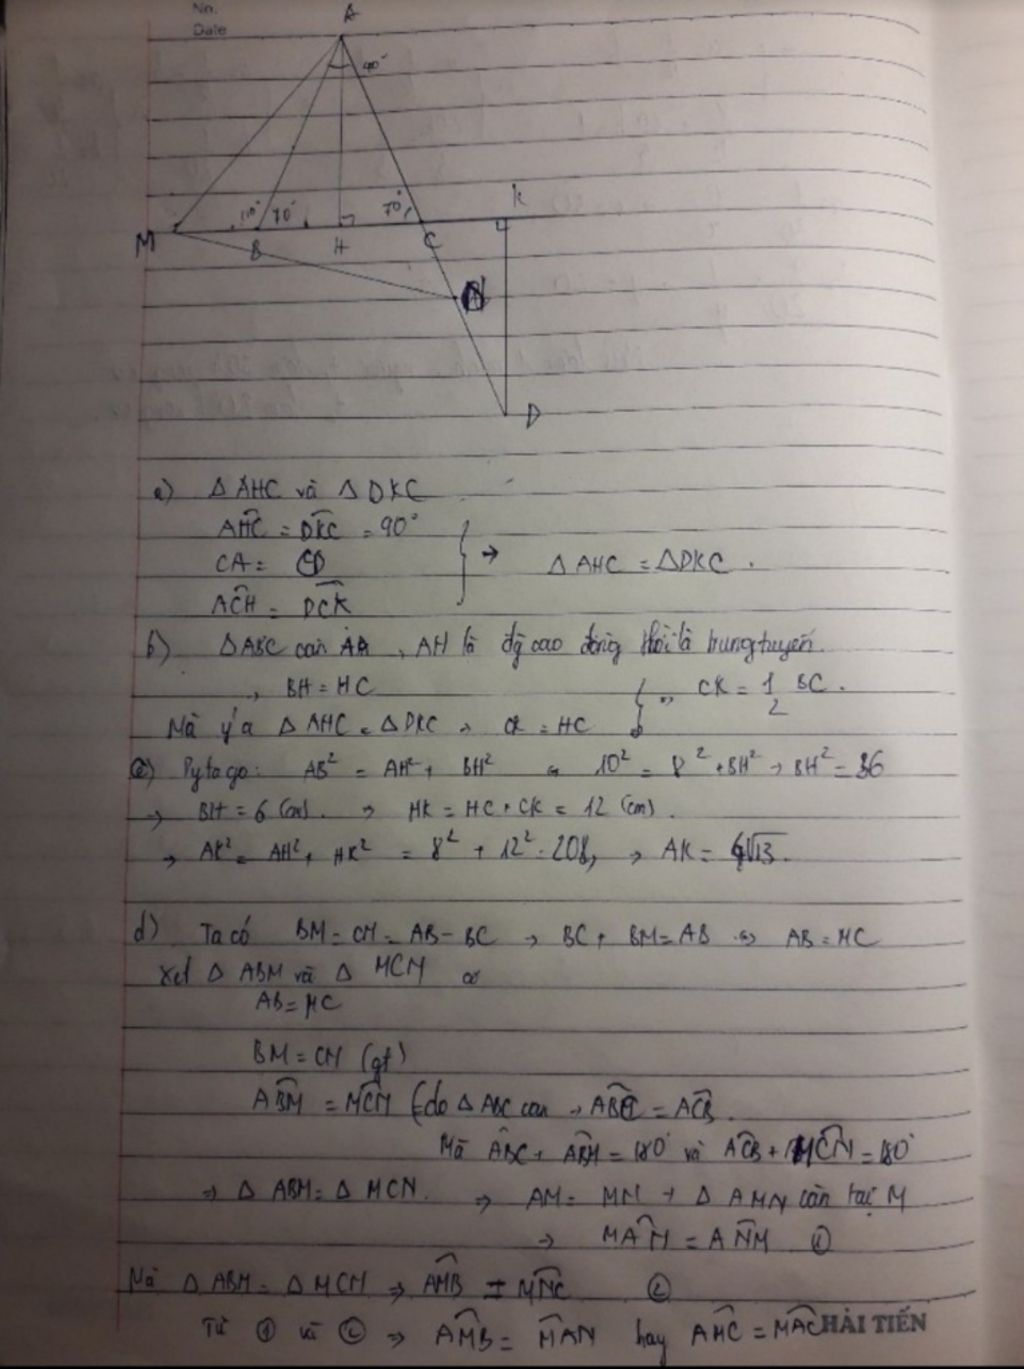 No.
Date
A
40°
110° 70°
70°
K
M
B
H
C
N
D
a) Δ AHC và Δ DKC
AHC = DKC = 90°
CA = CD
→ Δ AHC = ΔDKC.
ACH = DCK
b) ΔABC cân , AH là đg cao đồng thời là trung tuyến.
→ BH = HC
→ CK = 1/2 BC.
Mà ý a Δ AHC = Δ DKC → CK = HC
c) Pytago: AB² = AH² + BH² 10² = 8² + BH² → BH² = 36
→ BH = 6 (cm). → HK = HC + CK = 12 (cm).
→ AK² = AH² + HK² = 8² + 12² = 208, → AK = 4√13.
d) Ta có BM = CN = AB - BC → BC + BM = AB ⇔ AB = MC
Xét Δ ABM và Δ MCN có
AB = MC
BM = CN (gt)
ABM = MCN (do Δ ABC cân → ABC = ACB.
Mà ABC + ABM = 180° và ACB + MCN = 180°
⇒ Δ ABM = Δ MCN. ⇒ AM = MN → Δ AMN cân tại M
→ MAN = ANM ①
Mà Δ ABM = Δ MCN → AMB = MNC ②
Từ ① và ② ⇒ AMB = MAN hay AMC = MAC
HẢI TIẾN